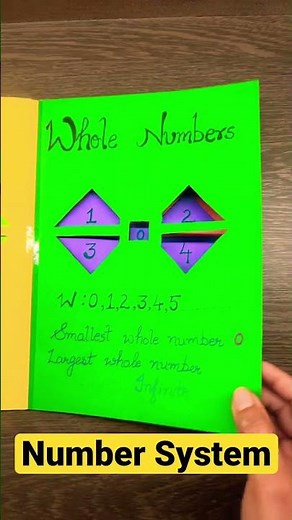 Whole Numbers
1 2
0
3 4
W : 0, 1, 2, 3, 4, 5 ......
Smallest whole number 0
Largest whole number
Infinity
Number System